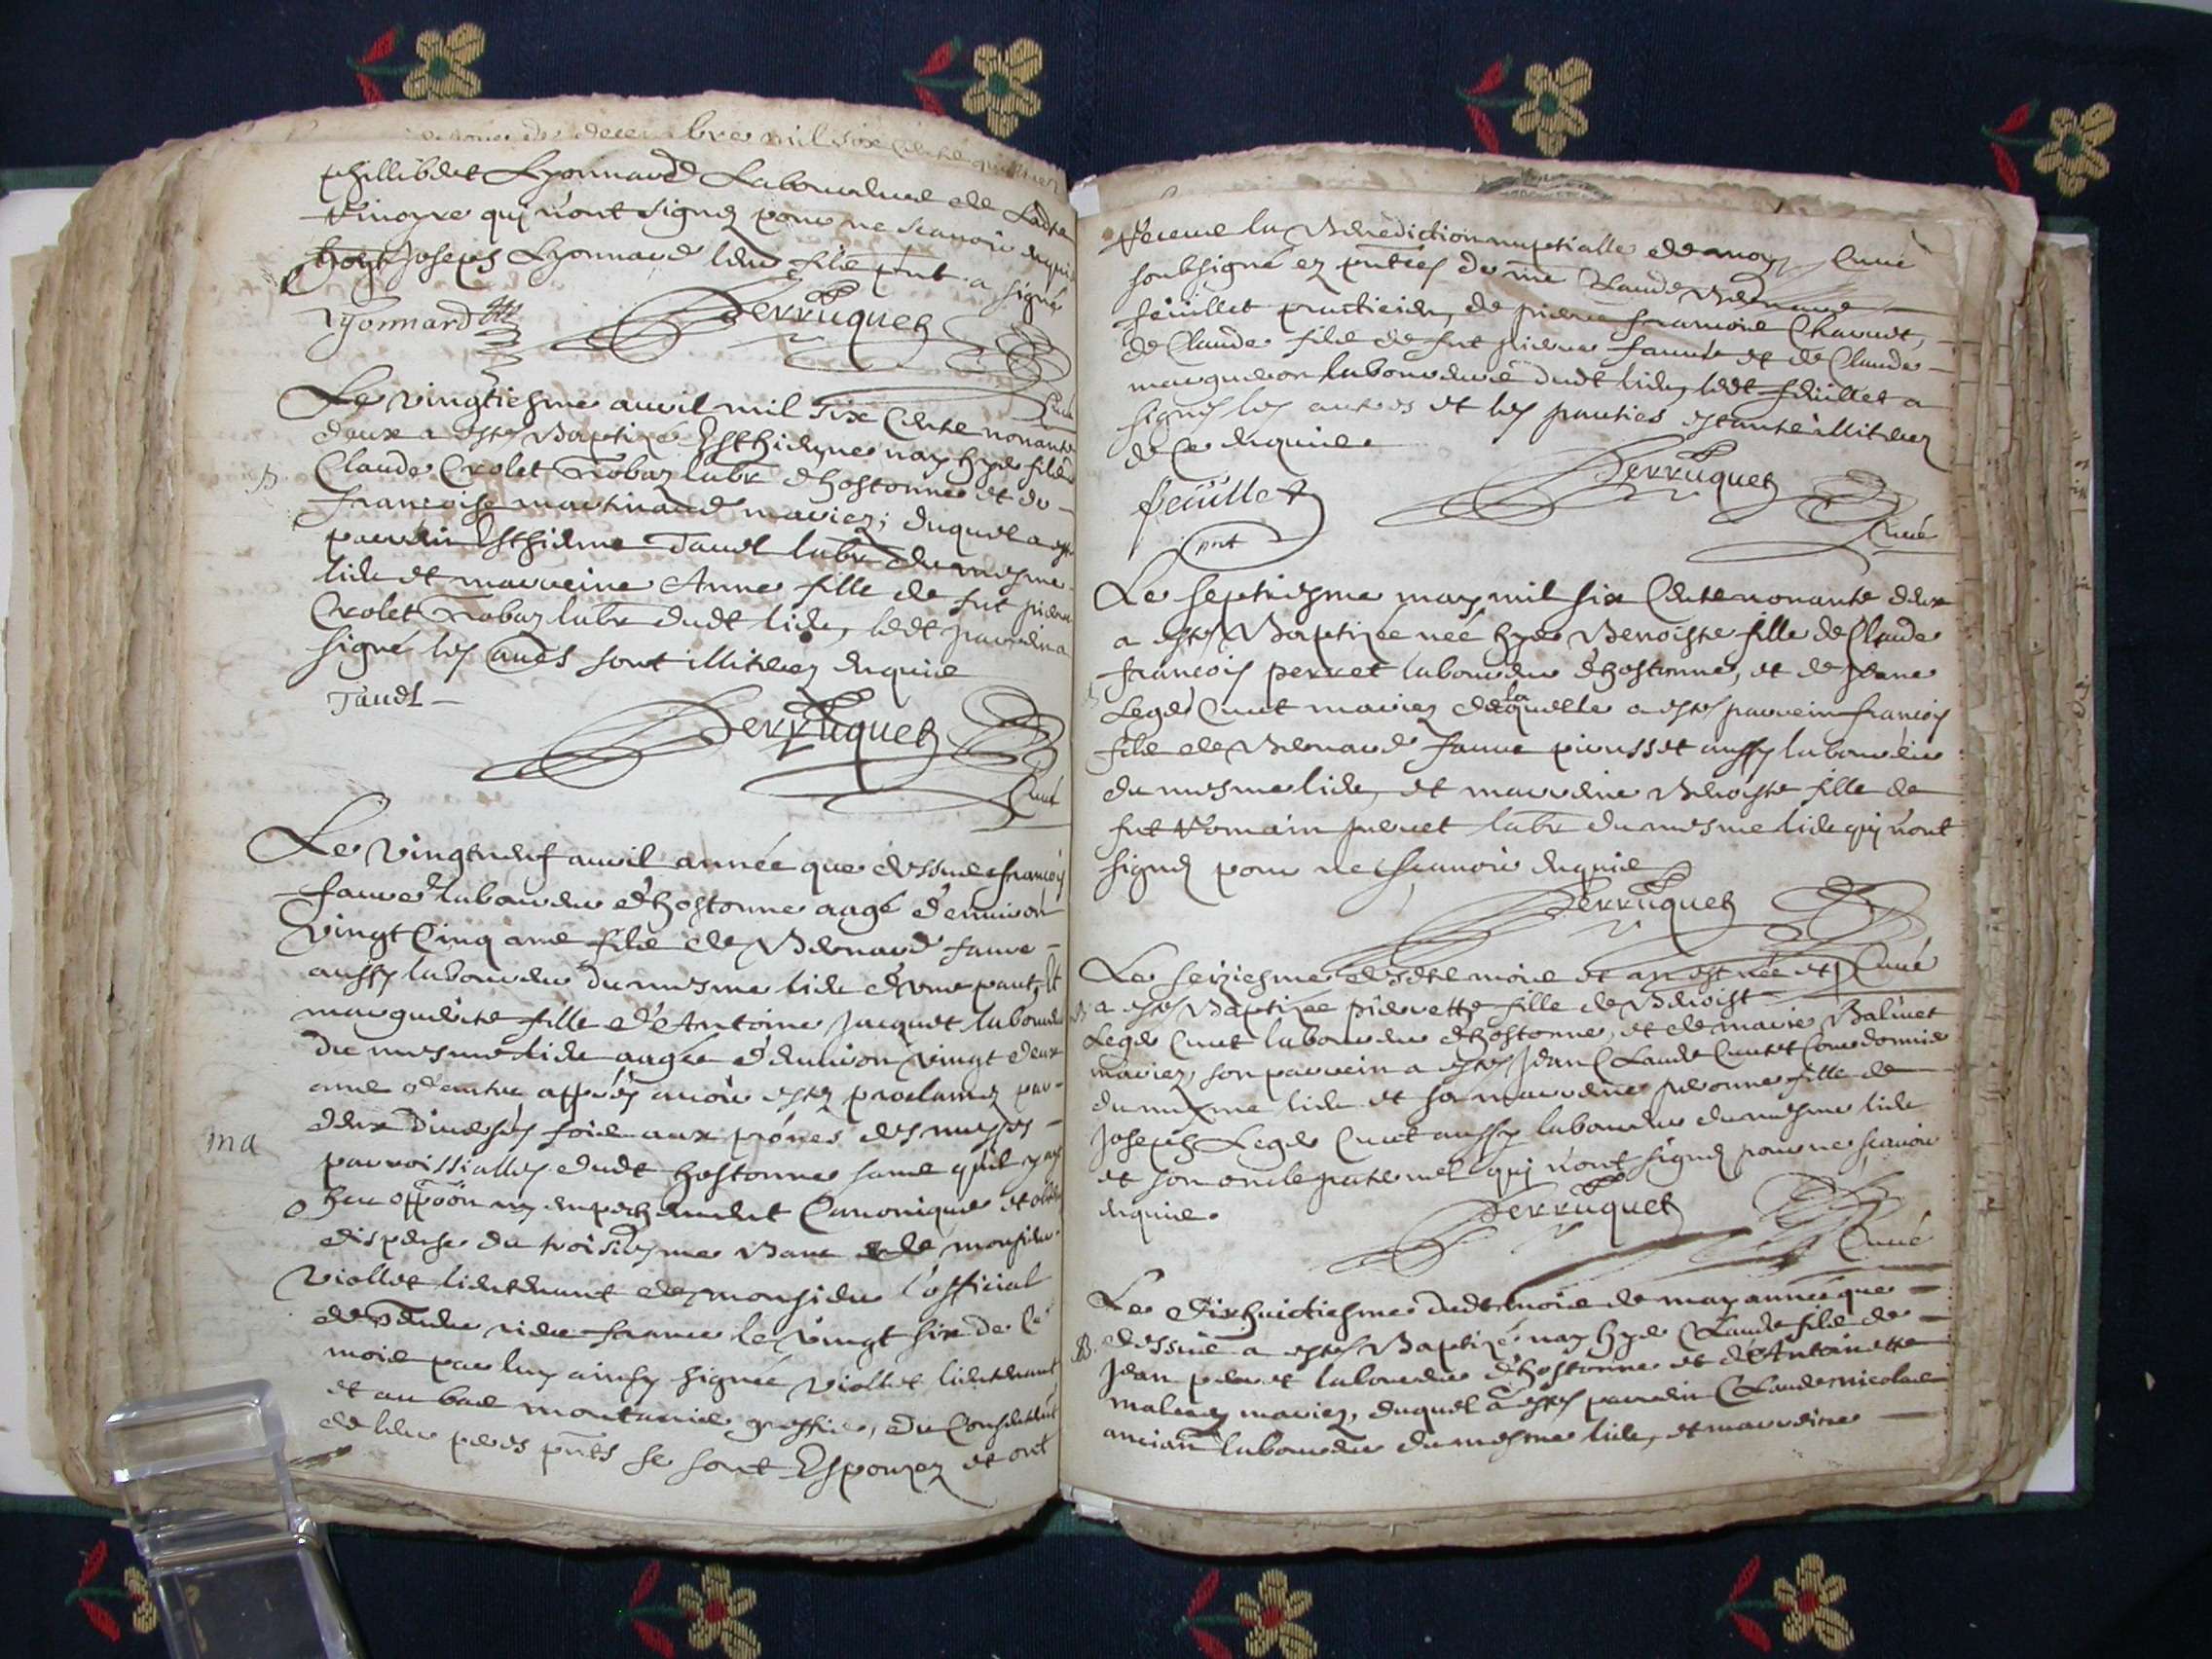 bre mil six Cents
phillibert Lyonnard Laboureur de Ladte
qui n'ont signez pour ne scavoir enquis
Joseph Lyonnard leur fils pnt a signé
Lyonnard
Perruquet
Curé
Le vingtiesme avvil mil six Cents nonante
deux a esté Baptizé Esthienne nay hyer fils de
Claude Crolet Nobaz labr d'hostonne et de
francoise martinand mariez; duquel a esté
parrain Esthienne Taudt labr du mesme
lieu et marreine Anne fille de fut pierre
Crolet Nobaz labr dudt lieu, ledt parrein a
signé les aues sont illiterez enquis
Taudt
Perruquet
Curé
Le vingtneuf avvil année que dessus francois
favre laboureur d'hostonne aagé d'environ
vingt Cinq ans fils de Bernard favre
aussy laboureur du mesme lieu d'une part, Et
marguerite fille d'Antoine Jacquet laboureur
du mesme lieu aagée d'environ vingt deux
ans d'autre apprés avoir estez proclamez par
deux diverses fois aux prônes des messes
ma
parroissialles dudt hostonne sans qu'il y ayt
heu oppoön ny empeschement Canonique et obtenu
dispense du troisiesme Banc de monsieur
Violles lieutenant de monsieur l'official
france le vingt six de ce
mois par luy ainsy signée Violles lieutenant
et au bas montanier greffier, du Consentement
de leur peres pnts se sont Espousez et ont
Receus la Benediction nuptialle de moy Curé
soubsigné ez pntces de me Claude Bernard
feüillet practicien, de pierre francois Charvet,
de Claude fils de fut pierre favre et de Claude
margueron laboureurs dudt lieu, ledt feüillet a
signé les autres et les parties estants illiterez
de ce enquis.
feüillet
pnt
Perruquet
Curé
Le septiesme may mil six Cents nonante deux
a esté Baptizée née hyer Benoiste fille de Claude
francois perret laboureur d'hostonne, et de Jeanne
Leger Cuvet mariez de laquelle a esté parrein francois
fils de Bernard favre piousset aussy laboureur
du mesme lieu, et marreine Benoiste fille de
fut Romain perret labr du mesme lieu qui n'ont
signez pour ne scavoir enquis
Perruquet
Curé
Le seiziesme desdts mois et an est née et
B. a esté Baptizée pierrette fille de Benoist
Leger Cuvet laboureur d'hostonne, et de marie Balivet
mariez, son parrein a esté Jean Claude Cuvet Courdonnier
du mesme lieu et sa marreine pernonne fille de
Joseph Leger Cuvet aussy laboureur du mesme lieu
et son oncle paternel qui n'ont signez pour ne scavoir
enquis.
Perruquet
Curé
Le dixhuictiesme dudt mois de may année que
B. dessus a esté Baptizé nay hyer Claude fils de
Jean perret laboureur d'hostonne et d'Antoinette
mariez, duquel a esté parrein Claude nicolas
ancian laboureur du mesme lieu, et marreine